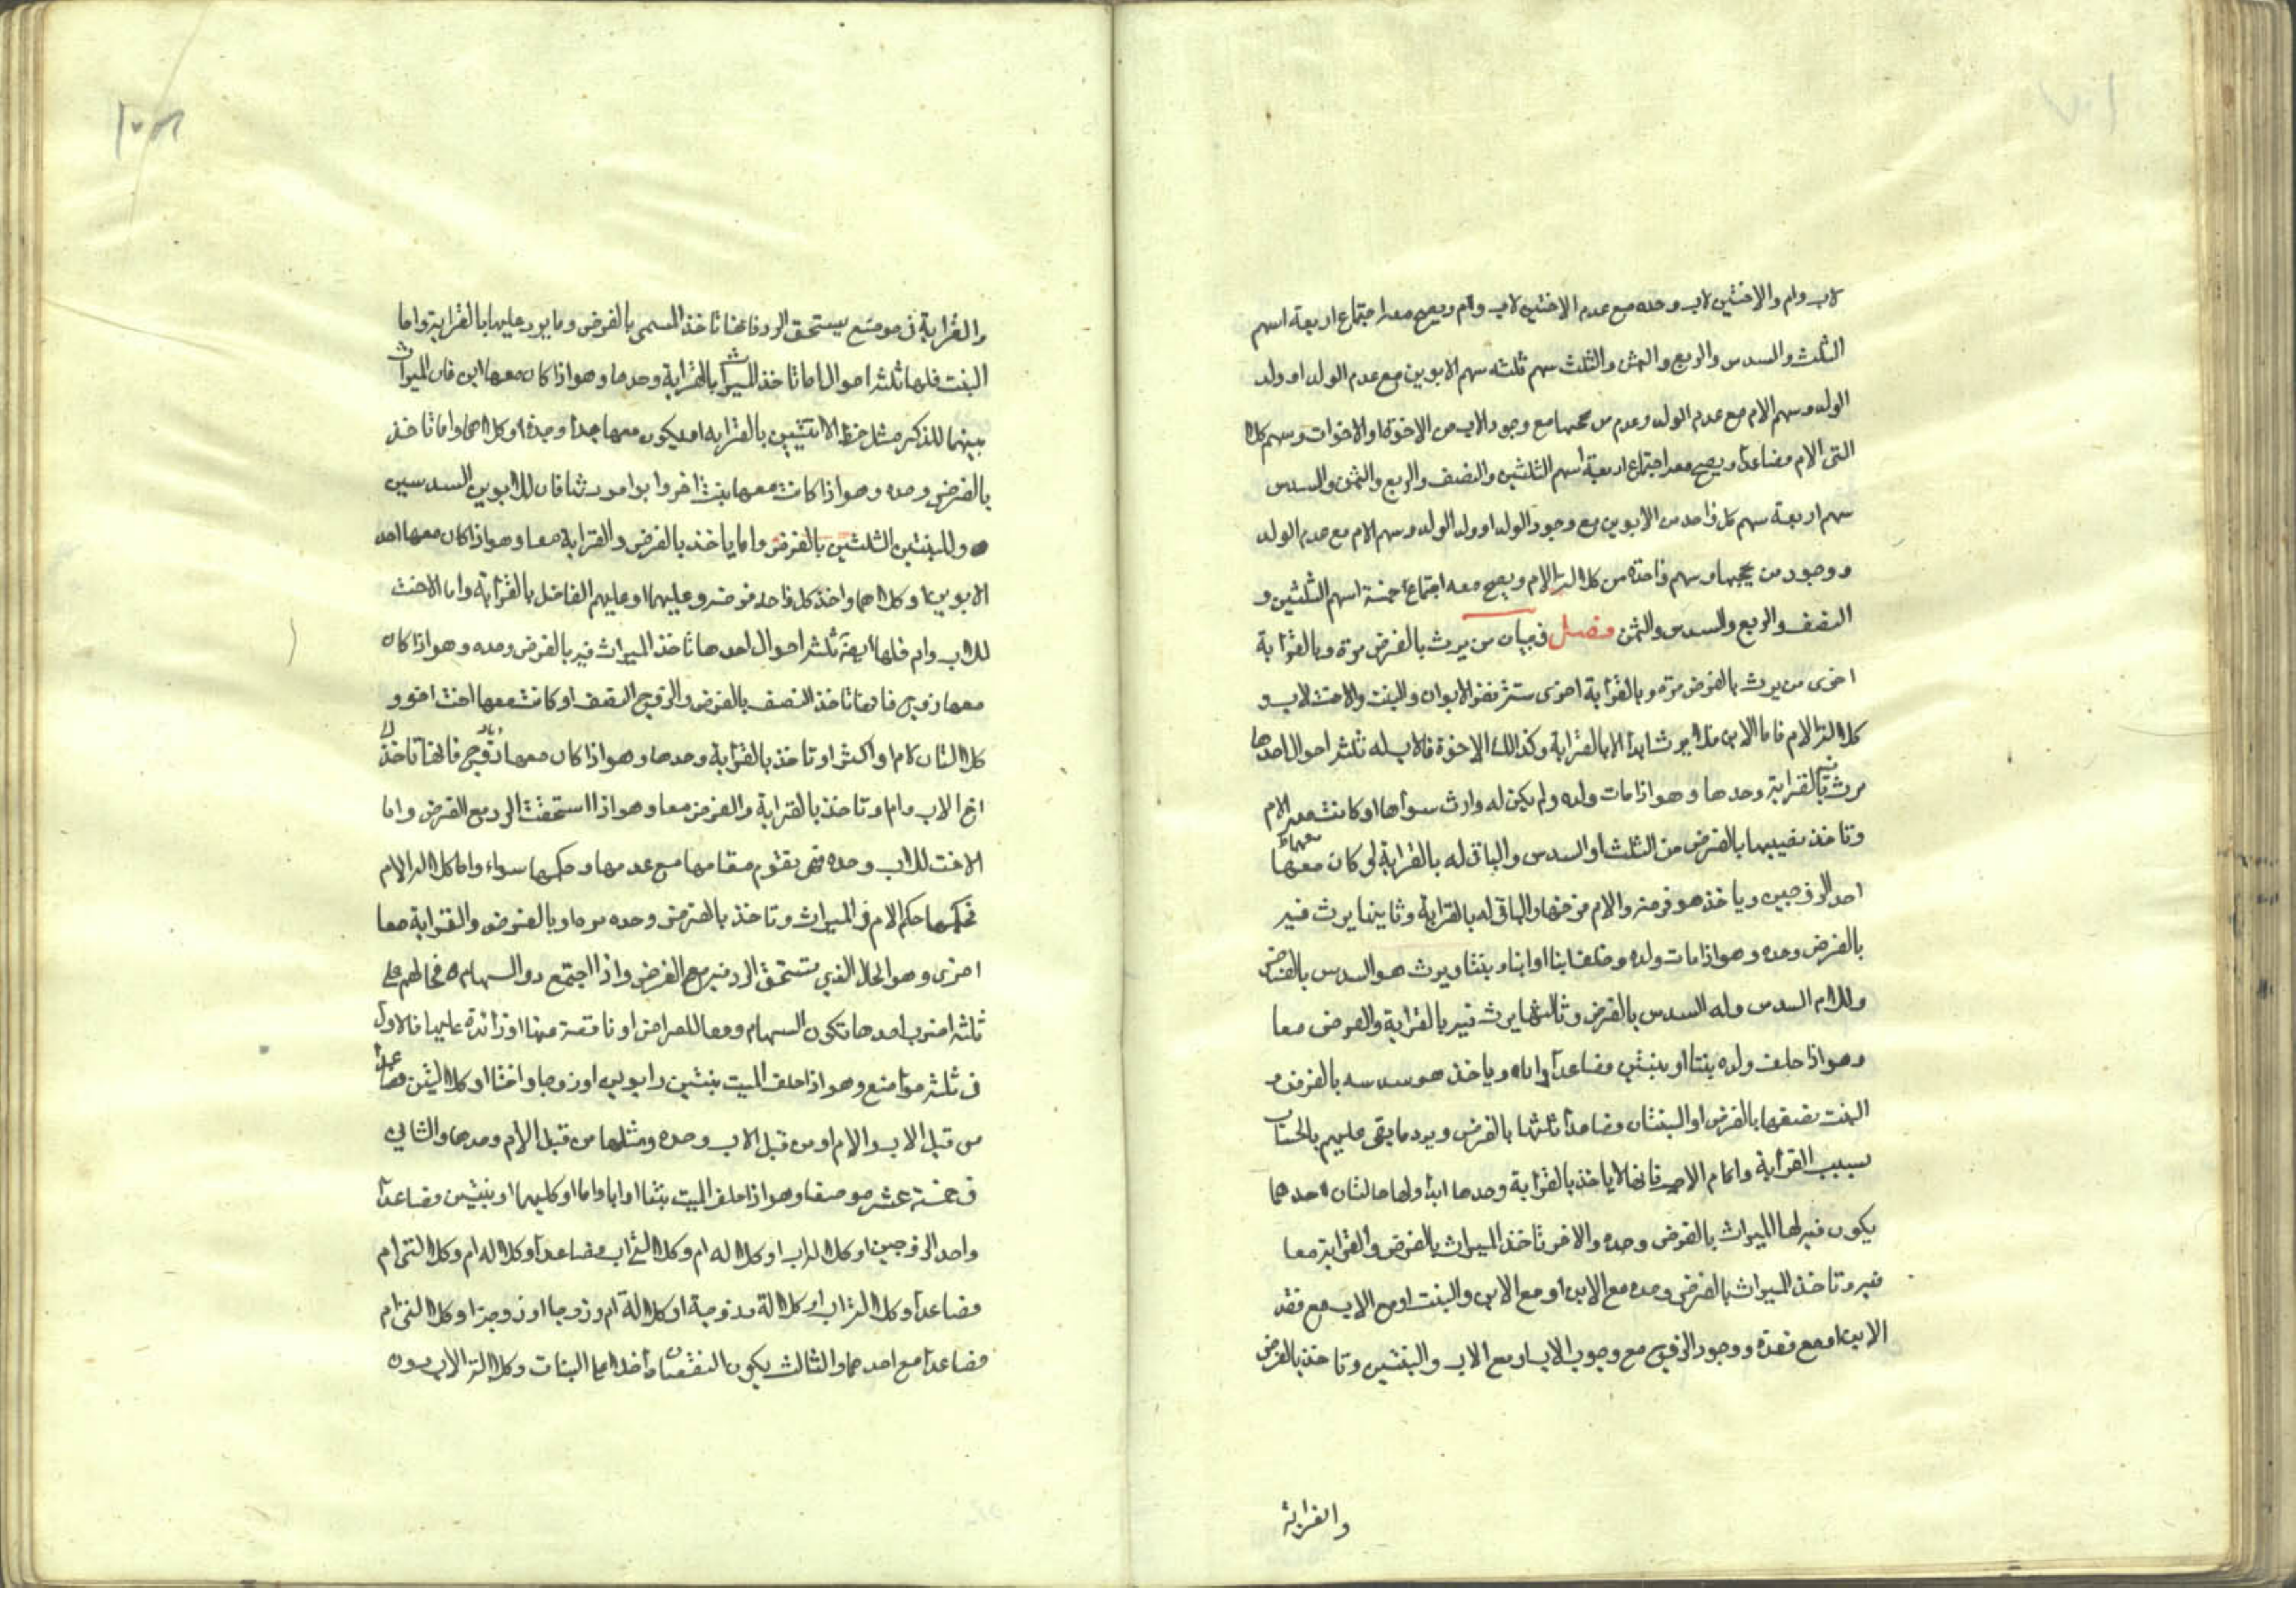 لاب وام والاختين لاب وحده مع عدم الاختين لاب وام ويصح معه اجتماع اربعة اسهم
الثلث والسدس والربع والثمن والثلث سهم ثلثه سهم الابوين مع عدم الولد او ولد
الولد وسهم الام مع عدم الولد وعدم من يحجبها مع وجود الاب من الاخوة او الاخوات وسهم كلالة
التى الام فصاعدا ويصح معه اجتماع اربعة اسهم الثلثين والنصف والربع والثمن والسدس
سهم اربعة سهم كل واحد من الابوين مع وجود الولد او ولد الولد وسهم الام مع عدم الولد
ووجود من يحجبها وسهم واحدة من كلالة الام ويصح معه اجتماع خمسة اسهم الثلثين و
النصف والربع والسدس والثمن فصل في بيان من يرث بالفرض مرة وبالقرابة
اخرى من يرث بالفرض مرة وبالقرابة اخرى ستة نفر الابوان والبنت والاخت لاب و
كلالة الام فاما الابن فلا يرث ابدا الا بالقرابة وكذلك الاخوة فالاب له ثلثة احوال احدها
يرث فيه بالقرابة وحدها وهو اذا مات ولده ولم يكن له وارث سواها او كانت معه الام
وتاخذ نصيبها بالفرض من الثلث او السدس والباقى له بالقرابة او كان معهما
احد الزوجين وياخذ هو فرضه والام فرضها والباقى له بالقرابة وثانيها يرث فيه
بالفرض وحده وهو اذا مات ولده وخلف ابنا او ابنا وبنتا ويرث هو السدس بالفرض
وللام السدس وله السدس بالفرض وثالثها يرث فيه بالقرابة والفرض معا
وهو اذا خلف ولده بنتا او بنتين فصاعدا واباه وياخذ هو سدسه بالفرض و
البنت نصفها بالفرض او البنتان فصاعدا ثلثها بالفرض ويرد ما بقى عليهم بالحساب
بسبب القرابة واما الام فانها لا ياخذ بالقرابة وحدها ابدا ولها حالتان احدهما
يكون فيه لها الميراث بالفرض وحده والاخر تاخذ الميراث بالفرض والقرابة معا
فيه وتاخذ الميراث بالفرض وحده مع الابن او مع الابن والبنت او مع الاب مع فقد
الابن او مع فقده ووجود الزوج مع وجوب الاب او مع الاب والبنتين وتاخذ بالفرض
والقرابة
والقرابة في موضع يستحق الرد فانها تاخذ المسمى بالفرض وما يرد عليها بالقرابة واما
البنت فلها ثلثة احوال اما تاخذ الميراث بالقرابة وحدها وهو اذا كان معها ابن فان الميراث
بينهما للذكر مثل حظ الانثيين بالقرابة او يكون معها جدا وجدة او كلاهما واما تاخذ
بالفرض وحده وهو اذا كانت معها بنت اخر وابوا مورثنا فان للابوين السدسين
وللبنتين الثلثين بالفرض واما ياخذ بالفرض والقرابة معا وهو اذا كان معها احد
الابوين او كلاهما واخذ كل واحد فرضه وعليهما او عليهم الفاضل بالقرابة واما الاخت
للاب وام فلها ايضا ثلثة احوال احدها تاخذ الميراث فيه بالفرض وحده وهو اذا كان
معها زوج فانها تاخذ النصف بالفرض والزوج النصف او كانت معها اخت اخر و
كلالتان لام او اكثر او تاخذ بالقرابة وحدها وهو اذا كان معها زوج فانها تاخذ
اخ الاب وام او تاخذ بالقرابة والفرض معا وهو اذا استحقت الرد مع الفرض واما
الاخت للاب وحده فهى يقوم مقامها مع عدمها وحكمها سواء واما كلالة الام
فحكمها حكم الام في الميراث وتاخذ بالفرض وحده مره او بالفرض والقرابة معا
اخرى وهو الحال الذي تستحق الرد فيه مع الفرض واذا اجتمع ذو السهام فحالهم على
ثلثه اضرب احدها تكون السهام وفقا للفرايض او ناقصة عنها او زائدة عليها فالاول
في ثلثه مواضع وهو اذا خلف الميت بنتين وابوين او زوجا واختا او كلالتين فصاعدا
من قبل الاب والام او من قبل الاب وحده ومثلها من قبل الام وحدها والثاني
في خمسة عشر موضعا وهو اذا خلف الميت بنتا او ابا واما او كليهما او بنتين فصاعدا
واحد الزوجين او كلالة اب او كلالة ام وكلالتى اب فصاعدا او كلالة ام وكلالتى ام
فصاعدا وكلالة اب او كلالة وزوجة او كلالة ام وزوجا او زوجة او كلالتى ام
فصاعدا مع احدهما والثالث يكون النقصان داخدا على البنات وكلالة الاب دون